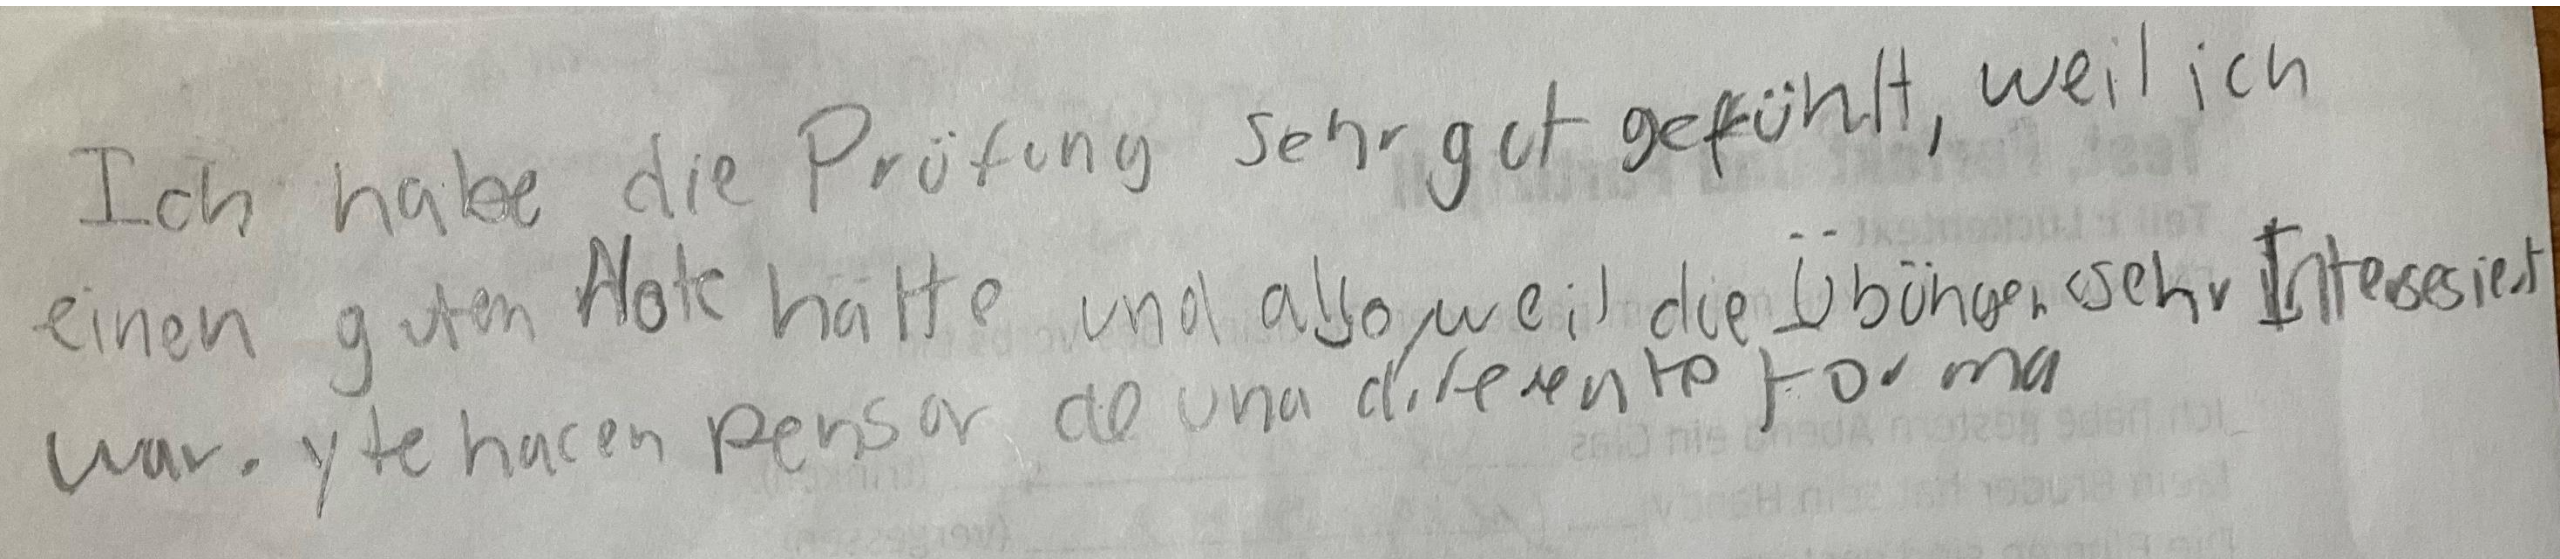 Ich habe die Prüfung sehr gut gefühlt, weil ich
einen guten Note hätte und also, weil die Übüngen sehr Interesiert
war. y te hacen pensar de una diferente forma